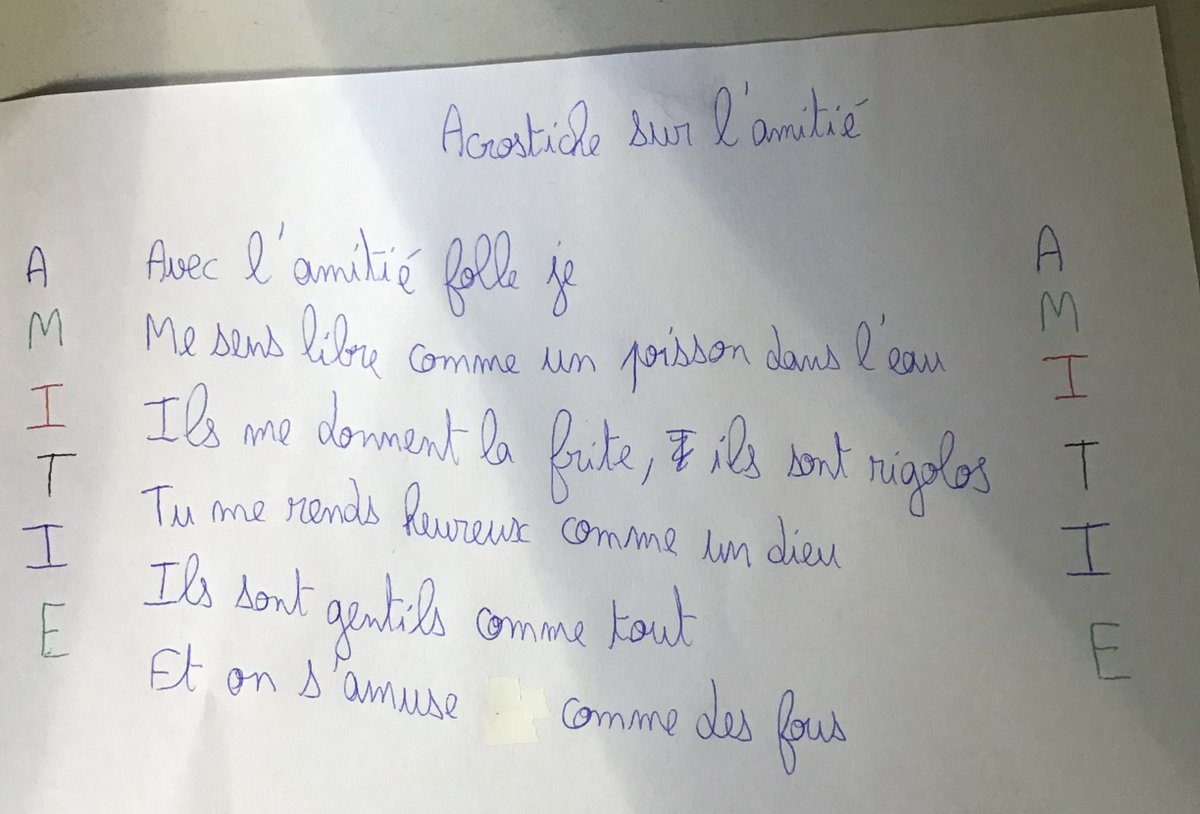 Acrostiche sur l'amitié
A Avec l'amitié folle je A
M Me sens libre comme un poisson dans l'eau M
I Ils me donnent la frite, ils sont rigolos I
T Tu me rends heureux comme un dieu T
I Ils sont gentils comme tout I
E Et on s'amuse comme des fous E